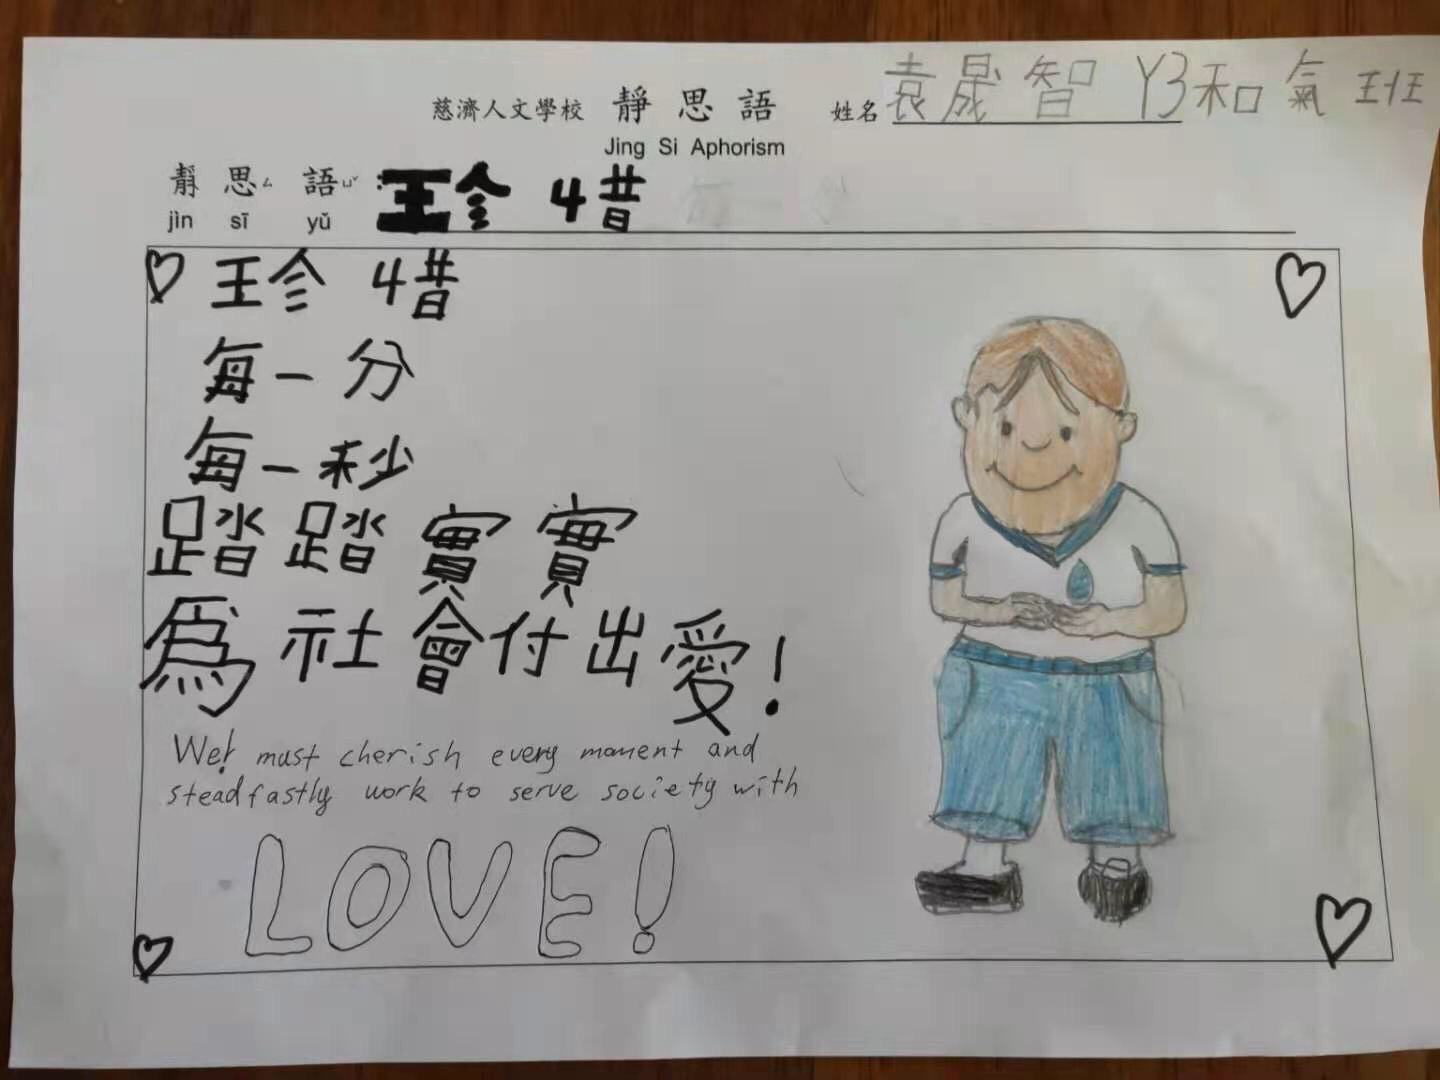 慈濟人文學校 靜思語 姓名 袁晟智 Y3和氣班
Jing Si Aphorism
靜思ㄙ語ㄩˇ: 珍惜
jìn sī yǔ
珍惜
每一分
每一秒
踏踏實實
為社會付出愛!
We! must cherish every moment and
steadfastly work to serve society with
LOVE!